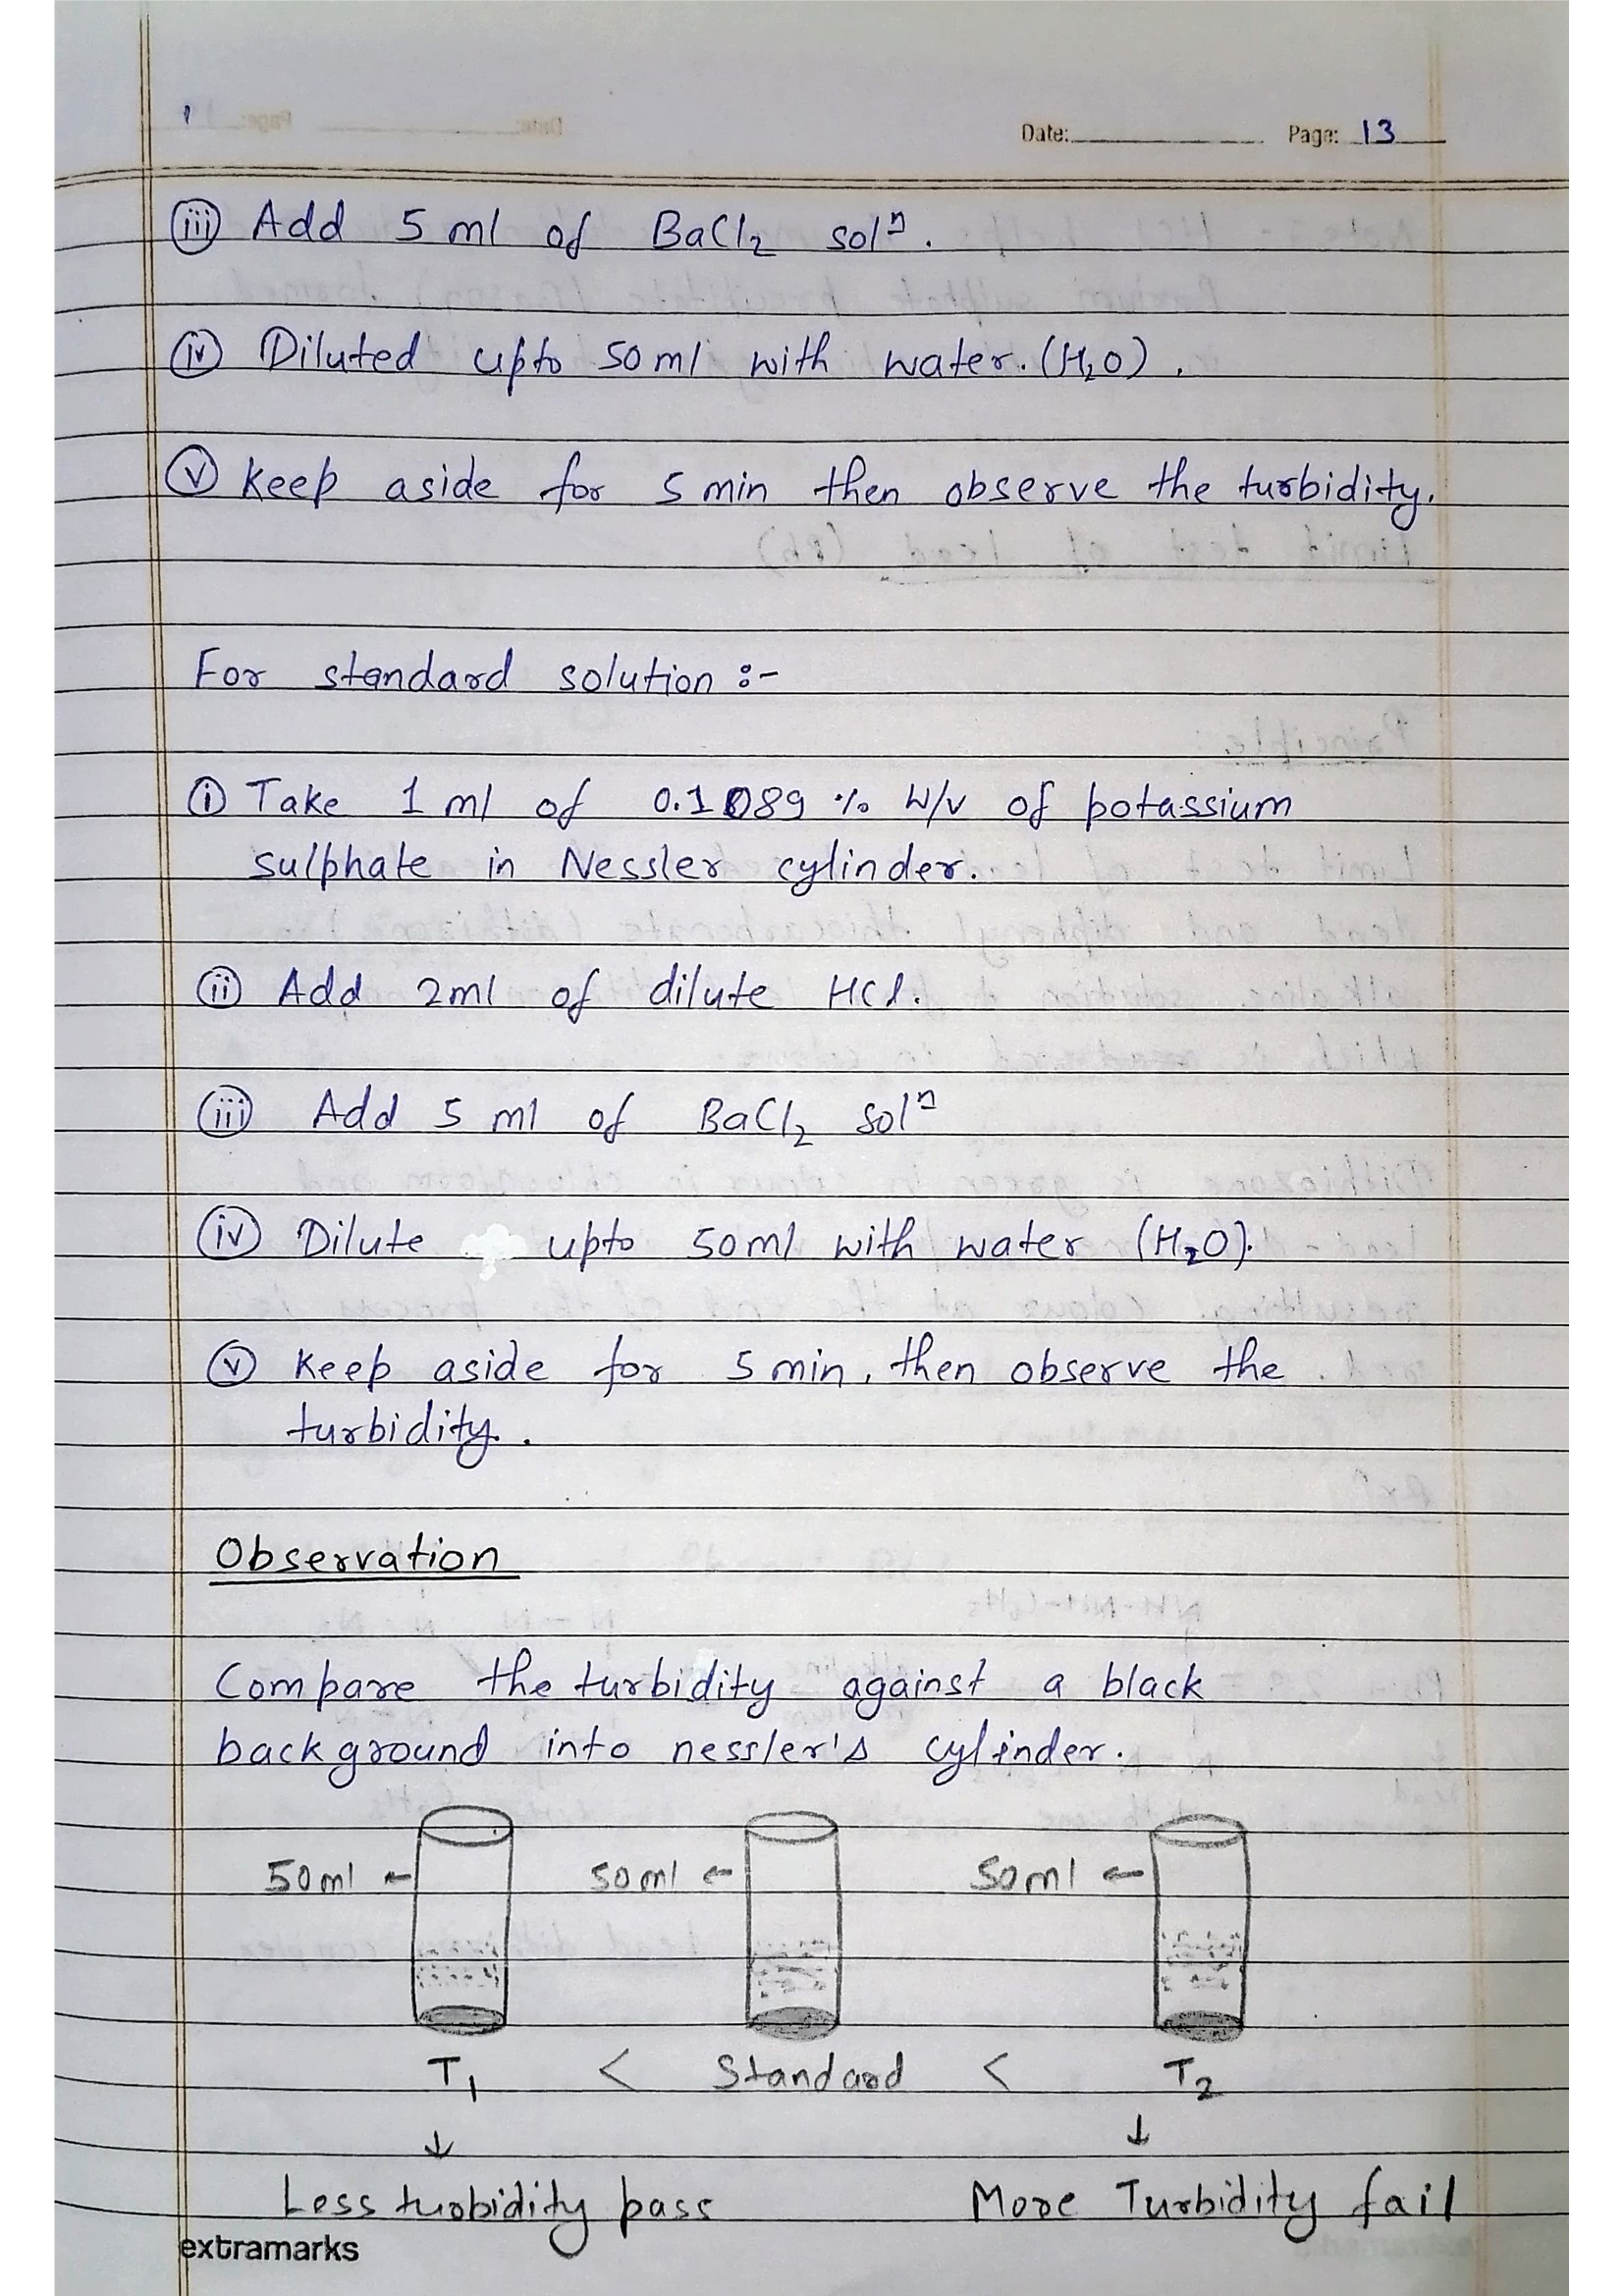 Date: Page: 13
(iii) Add 5 ml of BaCl₂ solⁿ.
(iv) Diluted upto 50 ml with water. (H₂O).
(v) Keep aside for 5 min then observe the turbidity.
For standard solution :-
(i) Take 1 ml of 0.1089 % W/v of potassium
sulphate in Nessler cylinder.
(ii) Add 2ml of dilute HCl.
(iii) Add 5 ml of BaCl₂ Solⁿ
(iv) Dilute upto 50ml with water (H₂O).
(v) Keep aside for 5 min, then observe the
turbidity.
Observation
Compare the turbidity against a black
background into nessler's cylinder.
50ml ← 50ml ← 50ml ←
T₁ < Standard < T₂
↓ ↓
Less turbidity pass More Turbidity fail
extramarks